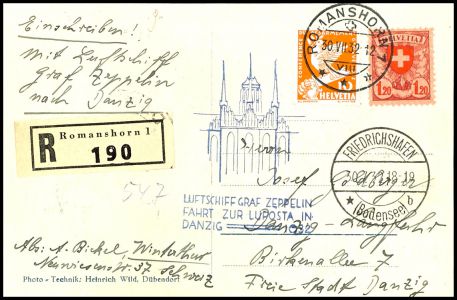 Einschreiben!
Mit Luftschiff
Graf Zeppelin
nach Danzig
ROMANSHORN
30.VII.32-12
VIII
HELVETIA
HELVETIA
1.20 1.20
R Romanshorn 1
190
547
FRIEDRICHSHAFEN
18-19
b
(Bodensee)
Herrn
Josef
LUFTSCHIFF GRAF ZEPPELIN
FAHRT ZUR LUPOSTA IN
DANZIG
Danzig-Langfuhr
Birkenallee 7
Freie Stadt Danzig
Abs: A. Bickel, Winterthur
Neuwiesenstr. 37 Schweiz
Photo - Technik: Heinrich Wild, Dübendorf